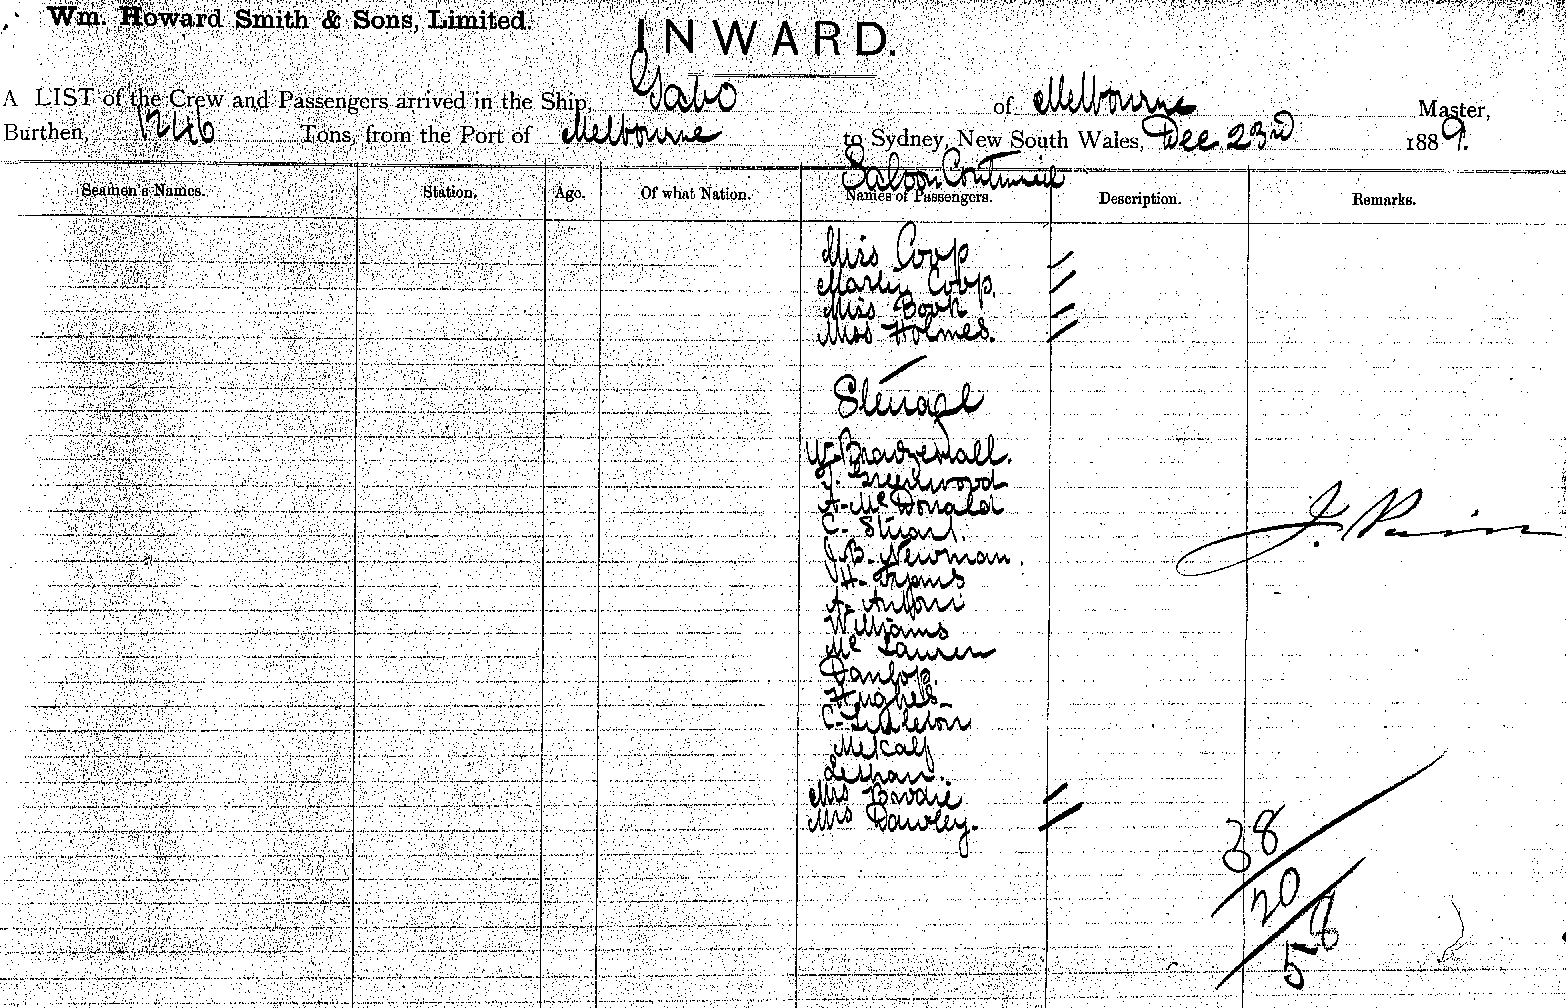 Wm. Howard Smith & Sons, Limited.
INWARD.
A LIST of the Crew and Passengers arrived in the Ship, Gabo of Melbourne Master,
Burthen, 1246 Tons, from the Port of Melbourne to Sydney, New South Wales, Dec 23rd 1889.
Saloon Continued
Seamen's Names. Station. Age. Of what Nation. Names of Passengers. Description. Remarks.
Miss Coop
Coop.
Miss Book
Miss Holmes.
Steerage
J. Greenwood
A. McDonald
C. Stuart.
J. B. Newman.
H.
A.
Williams
McLauren
Dunlop.
Hughes
C. Littleton
Metcalf
Mrs Brodie
Mrs Dawley.
J.
38
20
58